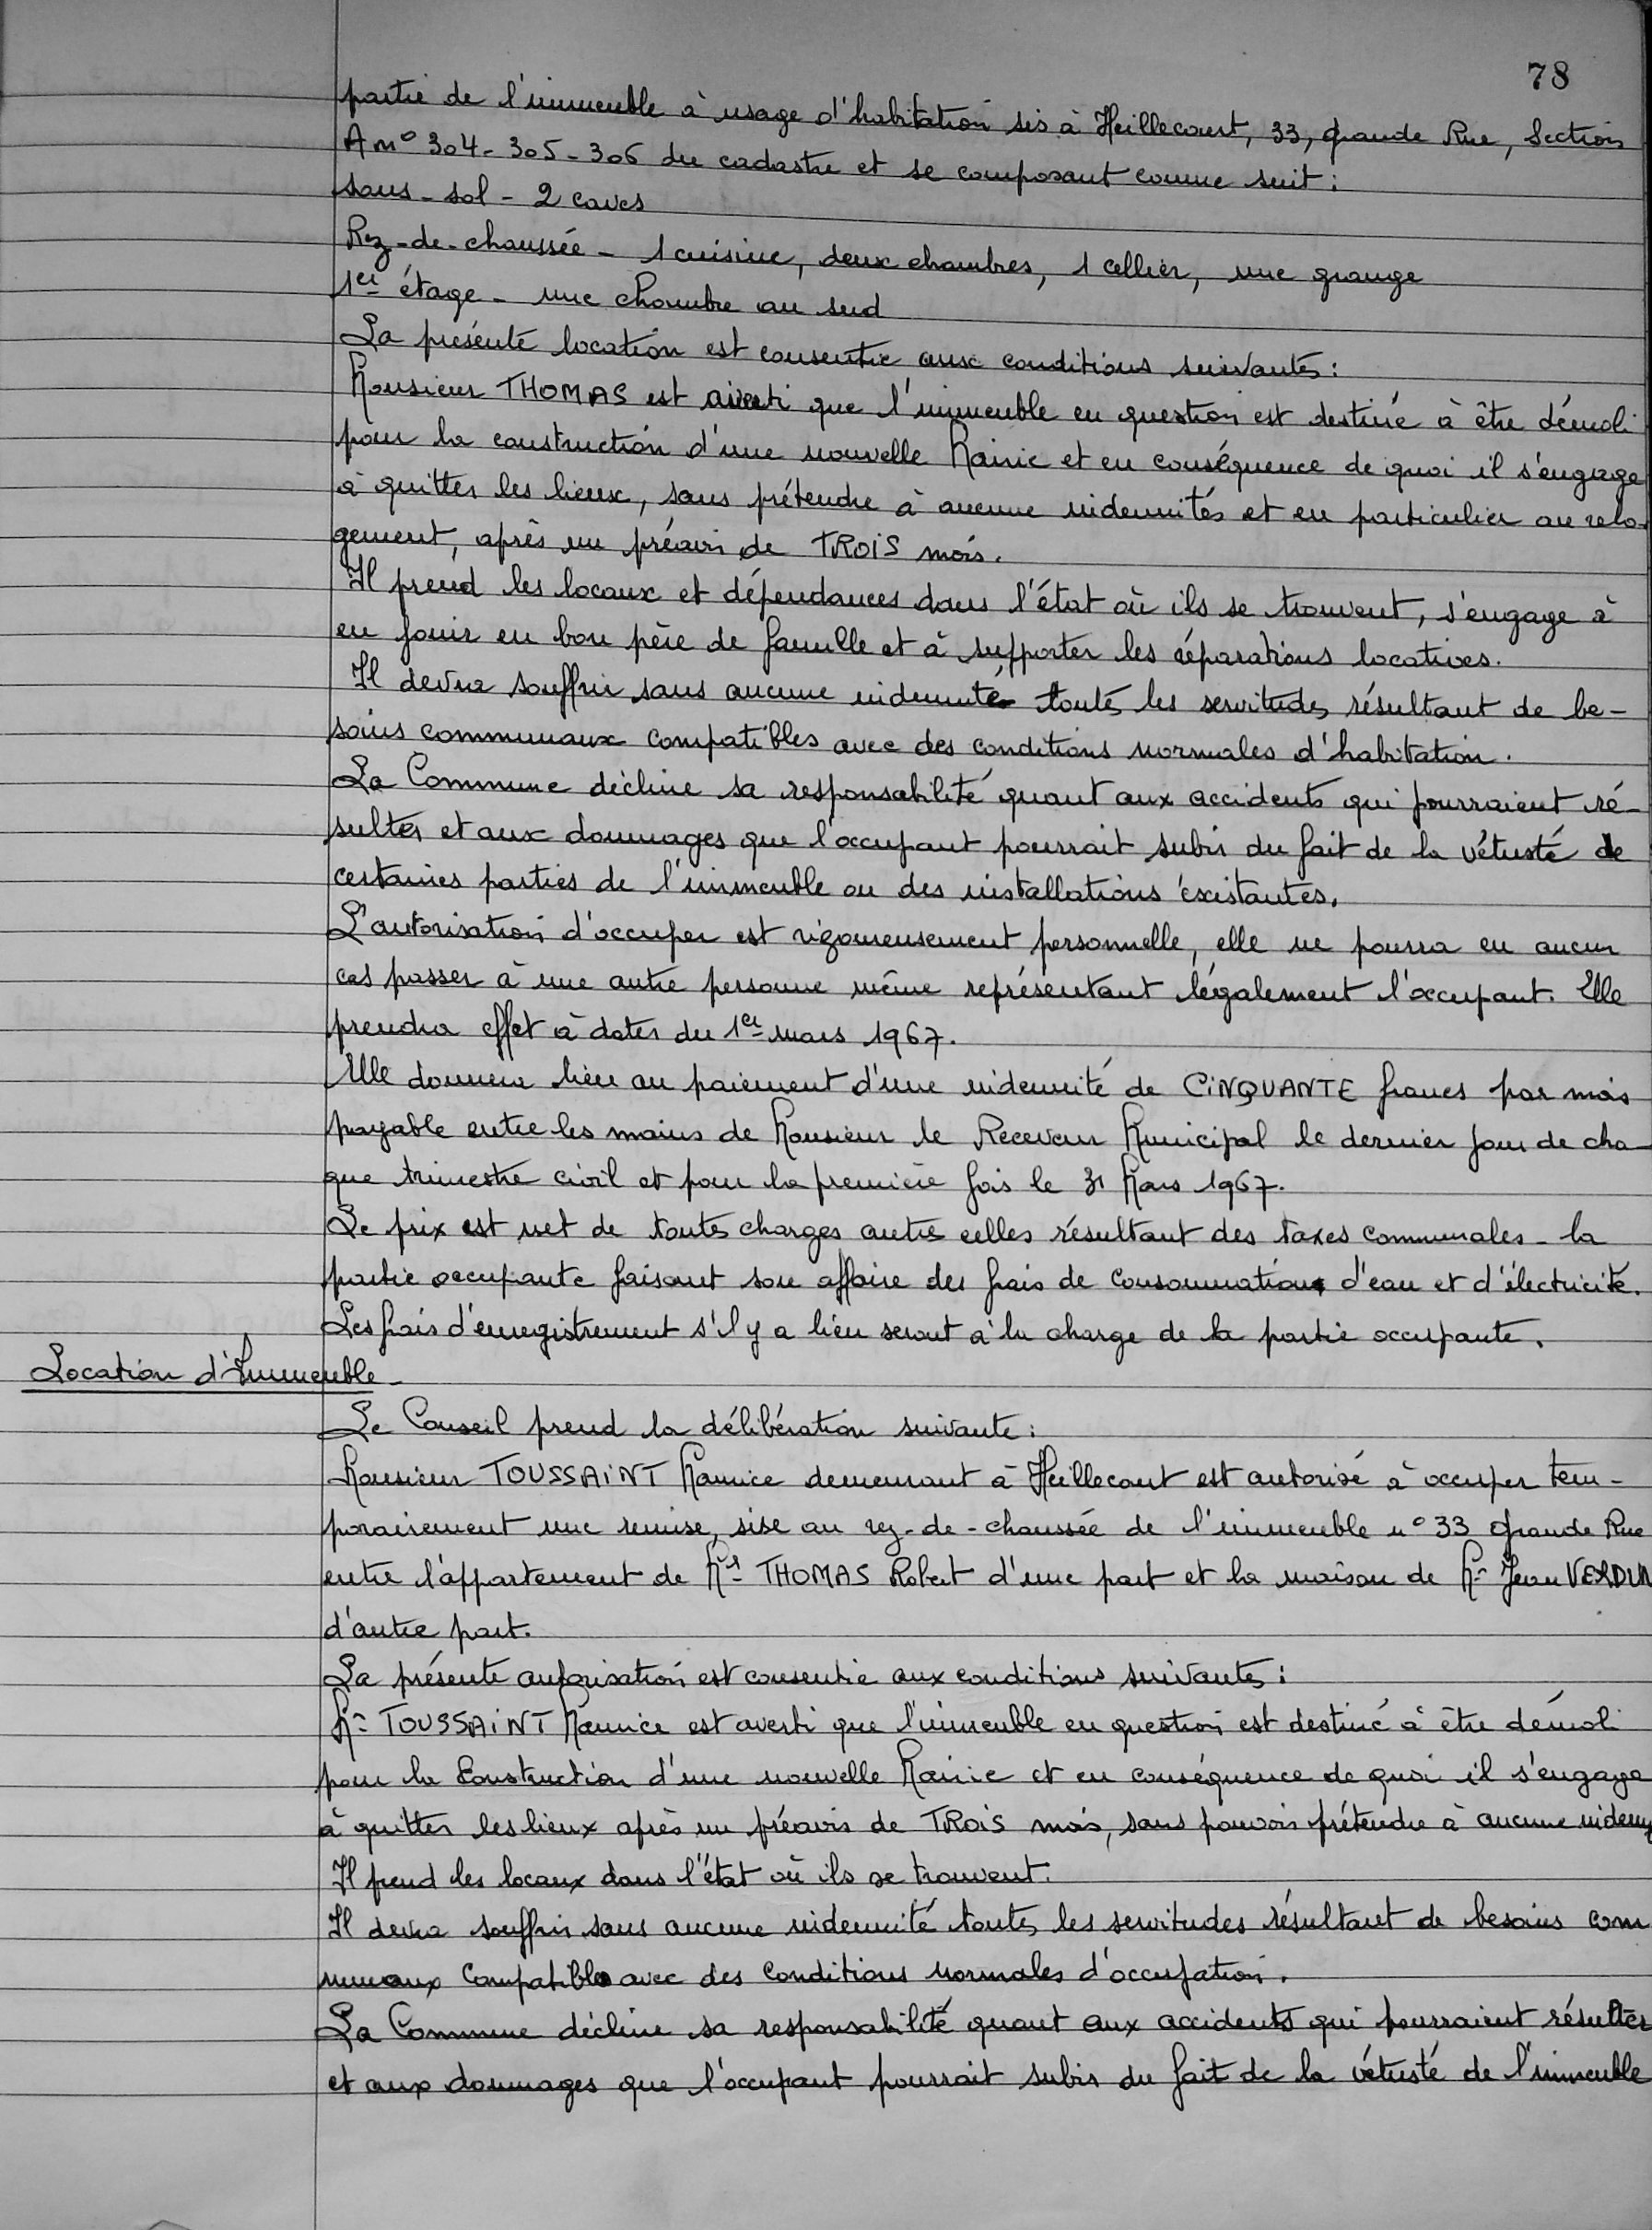 78
partie de l'immeuble à usage d'habitation sis à Heillecourt, 33, grande Rue, Section
A n° 304-305-306 du cadastre et se composant comme suit :
sous-sol - 2 caves
Rez-de-chaussée - 1 cuisine, deux chambres, 1 cellier, une grange
1er étage - une chambre au sud
La présente location est consentie aux conditions suivantes :
Monsieur THOMAS est averti que l'immeuble en question est destiné à être démoli
pour la construction d'une nouvelle Mairie et en conséquence de quoi il s'engage
à quitter les lieux, sans prétendre à aucune indemnités et en particulier au relo-
gement, après un préavis de TROIS mois.
Il prend les locaux et dépendances dans l'état où ils se trouvent, s'engage à
en jouir en bon père de famille et à supporter les réparations locatives.
Il devra souffrir sans aucune indemnité toutes les servitudes résultant de be-
soins communaux compatibles avec des conditions normales d'habitation.
La Commune décline sa responsabilité quant aux accidents qui pourraient ré-
sulter et aux dommages que l'occupant pourrait subir du fait de la vétusté de
certaines parties de l'immeuble ou des installations existantes.
L'autorisation d'occuper est rigoureusement personnelle, elle ne pourra en aucun
cas passer à une autre personne même représentant légalement l'occupant. Elle
prendra effet à dater du 1er mars 1967.
Elle donnera lieu au paiement d'une indemnité de CINQUANTE francs par mois
payable entre les mains de Monsieur le Receveur Municipal le dernier jour de cha-
que trimestre civil et pour la première fois le 31 Mars 1967.
Le prix est net de toutes charges autres celles résultant des taxes communales - la
partie occupante faisant son affaire des frais de consommation d'eau et d'électricité.
Les frais d'enregistrement s'il y a lieu seront à la charge de la partie occupante.
Location d'Immeuble -
Le Conseil prend la délibération suivante :
Monsieur TOUSSAINT Maurice demeurant à Heillecourt est autorisé à occuper tem-
porairement une remise, sise au rez-de-chaussée de l'immeuble n° 33 grande Rue
entre l'appartement de Mr THOMAS Robert d'une part et la maison de Mr Jean VERDUN
d'autre part.
La présente autorisation est consentie aux conditions suivantes :
Mr TOUSSAINT Maurice est averti que l'immeuble en question est destiné à être démoli
pour la Construction d'une nouvelle Mairie et en conséquence de quoi il s'engage
à quitter les lieux après un préavis de TROIS mois, sans pouvoir prétendre à aucune
Il prend les locaux dans l'état où ils se trouvent.
Il devra souffrir sans aucune indemnité toutes les servitudes résultant de besoins com
munaux compatibles avec des conditions normales d'occupation.
La Commune décline sa responsabilité quant aux accidents qui pourraient résulter
et aux dommages que l'occupant pourrait subir du fait de la vétusté de l'immeuble